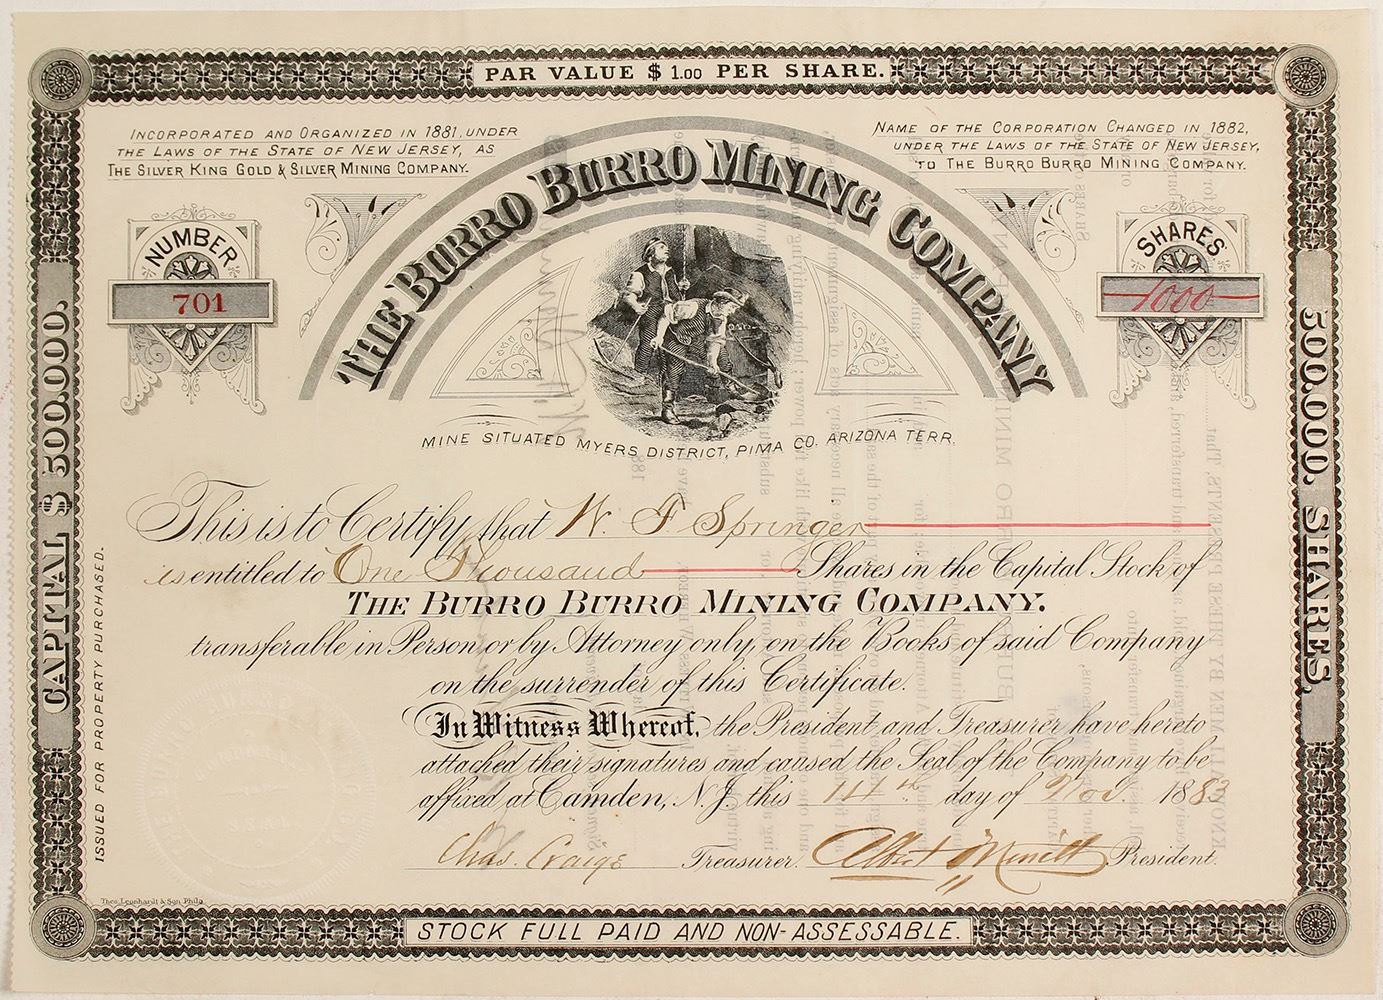 PAR VALUE $ 1.00 PER SHARE.
INCORPORATED AND ORGANIZED IN 1881, UNDER
THE LAWS OF THE STATE OF NEW JERSEY, AS
THE SILVER KING GOLD & SILVER MINING COMPANY.
NAME OF THE CORPORATION CHANGED IN 1882,
UNDER THE LAWS OF THE STATE OF NEW JERSEY,
TO THE BURRO BURRO MINING COMPANY.
THE BURRO BURRO MINING COMPANY
NUMBER
701
SHARES
1000
MINE SITUATED MYERS DISTRICT, PIMA CO. ARIZONA TERR.
CAPITAL $ 500.000.
500.000. SHARES.
ISSUED FOR PROPERTY PURCHASED.
This is to Certify, that W. F Springer
is entitled to One Thousand Shares in the Capital Stock of
THE BURRO BURRO MINING COMPANY.
transferable in Person or by Attorney only, on the Books of said Company
on the surrender of this Certificate.
In Witness Whereof, the President and Treasurer have hereto
attached their signatures and caused the Seal of the Company to be
affixed at Camden, N.J. this 14th day of Nov. 1883
Chas. Craige Treasurer. Albert Merritt President.
Theo. Leonhardt & Son Phila.
STOCK FULL PAID AND NON-ASSESSABLE.